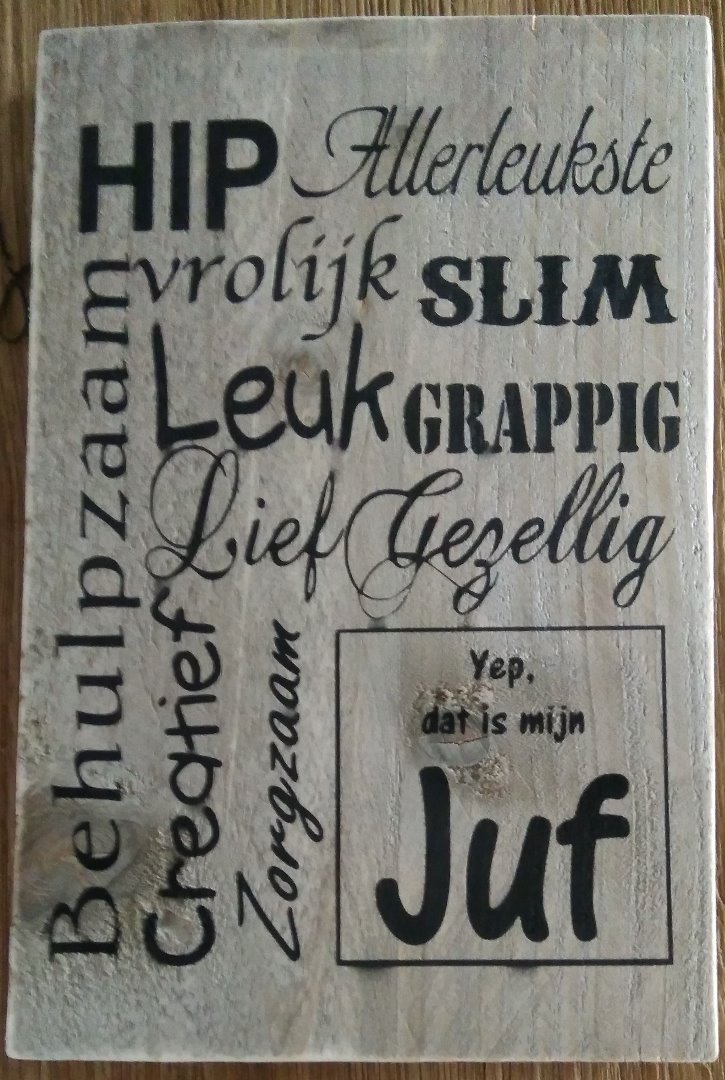 HIP Allerleukste
vrolijk SLIM
Leuk GRAPPIG
Lief Gezellig
Behulpzaam
Creatief
Zorgzaam
Yep,
dat is mijn
Juf